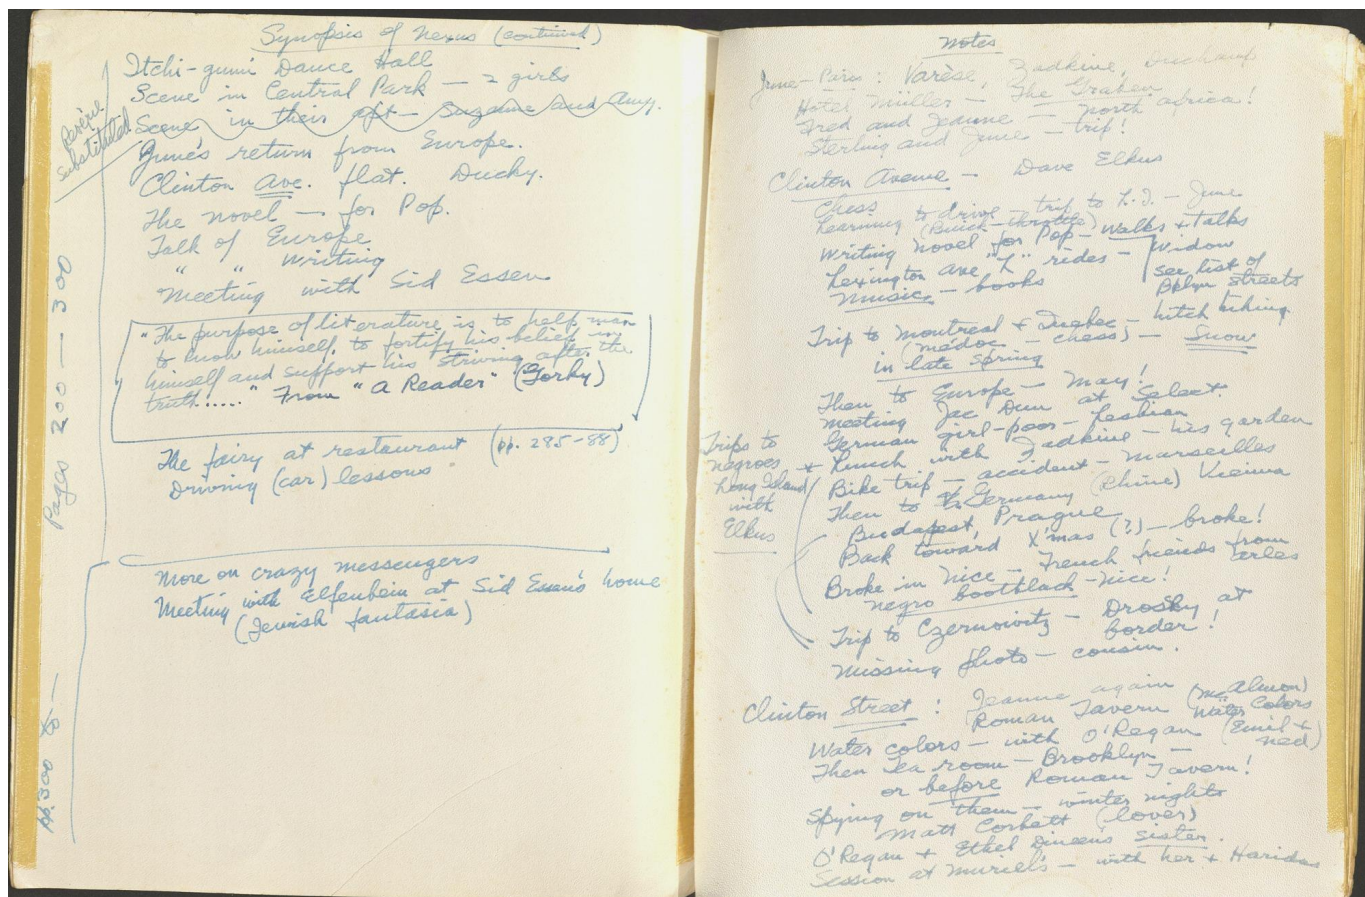 Synopsis of Nexus (continued)
Itchi-gumi Dance Hall
Scene in Central Park — 2 girls
Scene in their apt — Suzanne and Amy.
substituted
June's return from Europe.
Clinton Ave. flat. Ducky.
The novel — for Pop.
Talk of Europe
" " Writing
Meeting with Sid Essen
"The purpose of literature is to help man
to know himself, to fortify his belief in
himself and support his striving after the
truth....." From "A Reader" (Gorky)
The fairy at restaurant (pp. 285-88)
Driving (car) lessons
Pages 200 — 300
More on crazy messengers
Meeting with Elfenbein at Sid Essen's home
(Jewish fantasia)
pp. 300 to —
Notes
June – Paris: Varèse, Zadkine, Duchamp
Hotel Müller — The Graben
Fred and Jeanne — North Africa!
Sterling and June — trip!
Clinton Avenue — Dave Elkus
Chess
Learning to drive — trip to L.I. — June
(Buick-throttle)
Writing novel for Pop — Walks + talks
Lexington Ave "L" rides — Widow
Music — books
see list of
Bklyn Streets
Trip to Montreal + Quebec — hitch hiking
(Medoc — chess) — Snow
in late spring
Then to Europe — May!
Meeting Jac Dun at Select.
German girl-poor — Lesbian
Lunch with Zadkine — his garden
Bike trip — accident — Marseilles
Then to Germany (Rhine) Vienna
Budapest, Prague
Back toward X'mas (?) — broke!
Broke in Nice — French friends from
Arles
negro bootblack — Nice!
Trip to Czernowitz — Drosky at
border!
Missing photo — cousin.
Trips to
negroes +
Long Island
with
Elkus
Clinton Street: Jeanne again (McAlmon)
Roman Tavern Water Colors
Water colors — with O'Regan (Emil +
Ned)
Then Tea room — Brooklyn —
or before Roman Tavern!
Spying on them — winter nights
Matt Corbett (lover)
O'Regan + Ethel Dineen's sister.
Session at Muriel's — with her + Haridas